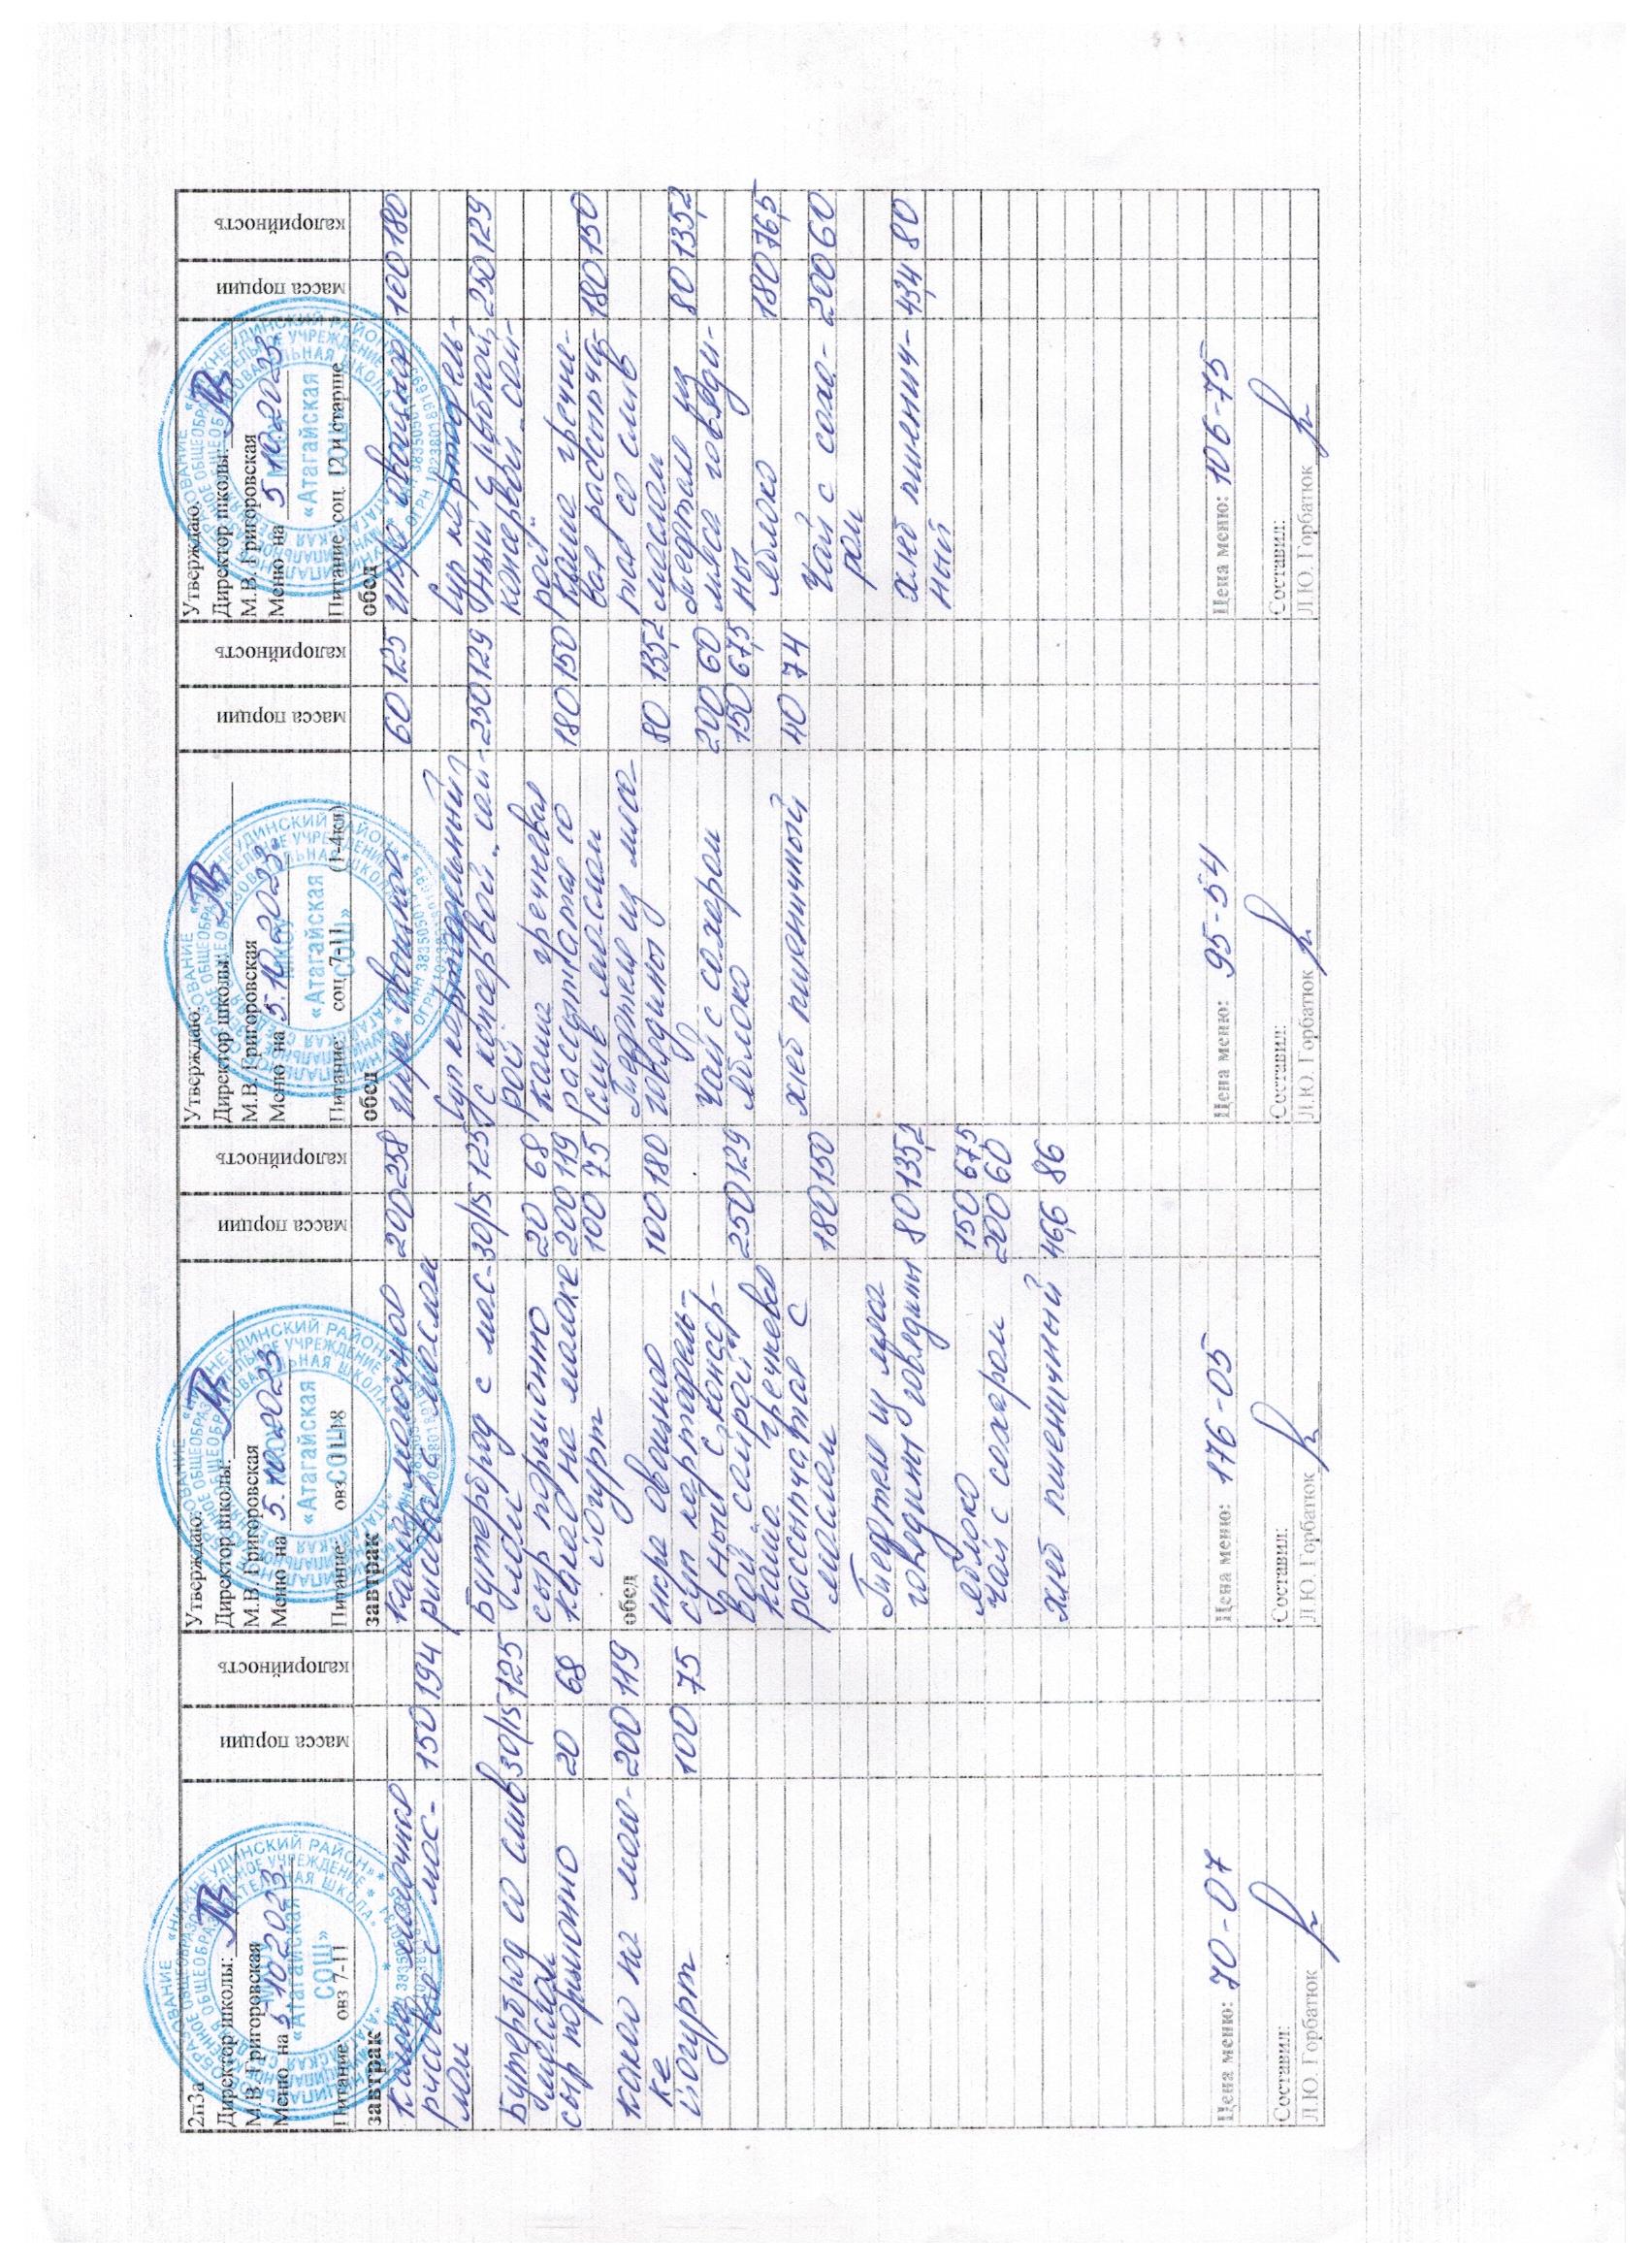 12п3а
Директор школы:
М.В. Григоровская
Меню на 5.10.2023.
Питание: овз 7-11
масса порции
калорийность
завтрак
Каша молочная
рисовая с мас- 150 194
лом
Бутерброд со слив 30/15 125
маслом
сыр порционно 20 68
какао на моло- 200 119
ке
йогурт 100 75
Цена меню: 70-07
Составил:
Л.Ю. Горбатюк
Утверждаю:
Директор школы:
М.В. Григоровская
Меню на 5.10.2023
Питание: овз 11-18
масса порции
калорийность
завтрак
каша молочная 200 238
рисовая с маслом
Бутерброд с мас- 30/15 125
лом
сыр порционно 20 68
какао на молоке 200 119
йогурт 100 75
обед
икра овощная 100 180
суп картофель-
ный с консер- 250 129
вой "сайрой"
каша гречнева
рассыпчатая с 180 150
маслом
Тефтели из мяса
говядины говядины 80 135,2
яблоко 150 67,5
Чай с сахаром 200 60
хлеб пшеничный 46,6 86
Цена меню: 176-05
Составил:
Л.Ю. Горбатюк
Утверждаю:
Директор школы:
М.В. Григоровская
Меню на 5.10.2023.
Питание: соц 7-11 (1-4кл)
масса порции
калорийность
обед
икра овощная 60 125
Суп картофельный
с консервой "сай- 250 129
рой"
каша гречневая
рассыпчатая со 180 150
слив маслом
Тефтели из мяса
говядины 80 135,2
Чай с сахаром 200 60
яблоко 150 67,5
хлеб пшеничный 40 74
Цена меню: 95-54
Составил:
Л.Ю. Горбатюк
Утверждаю:
Директор школы:
М.В. Григоровская
Меню на 5.10.2023.
Питание: соц. 12 и старше
масса порции
калорийность
обед
икра овощная 100 180
Суп картофель-
ный с рыбной 250 129
консервой "сай-
рой"
Каша гречне-
вая рассыпча- 180 150
тая со слив
маслом
Тефтели из 80 135,2
мяса говяди-
ны
яблоко 180 76,5
Чай с саха- 200 60
ром
хлеб пшенич- 43,4 80
ный
Цена меню: 106-75
Составил:
Л.Ю. Горбатюк
«Атагайская
СОШ»